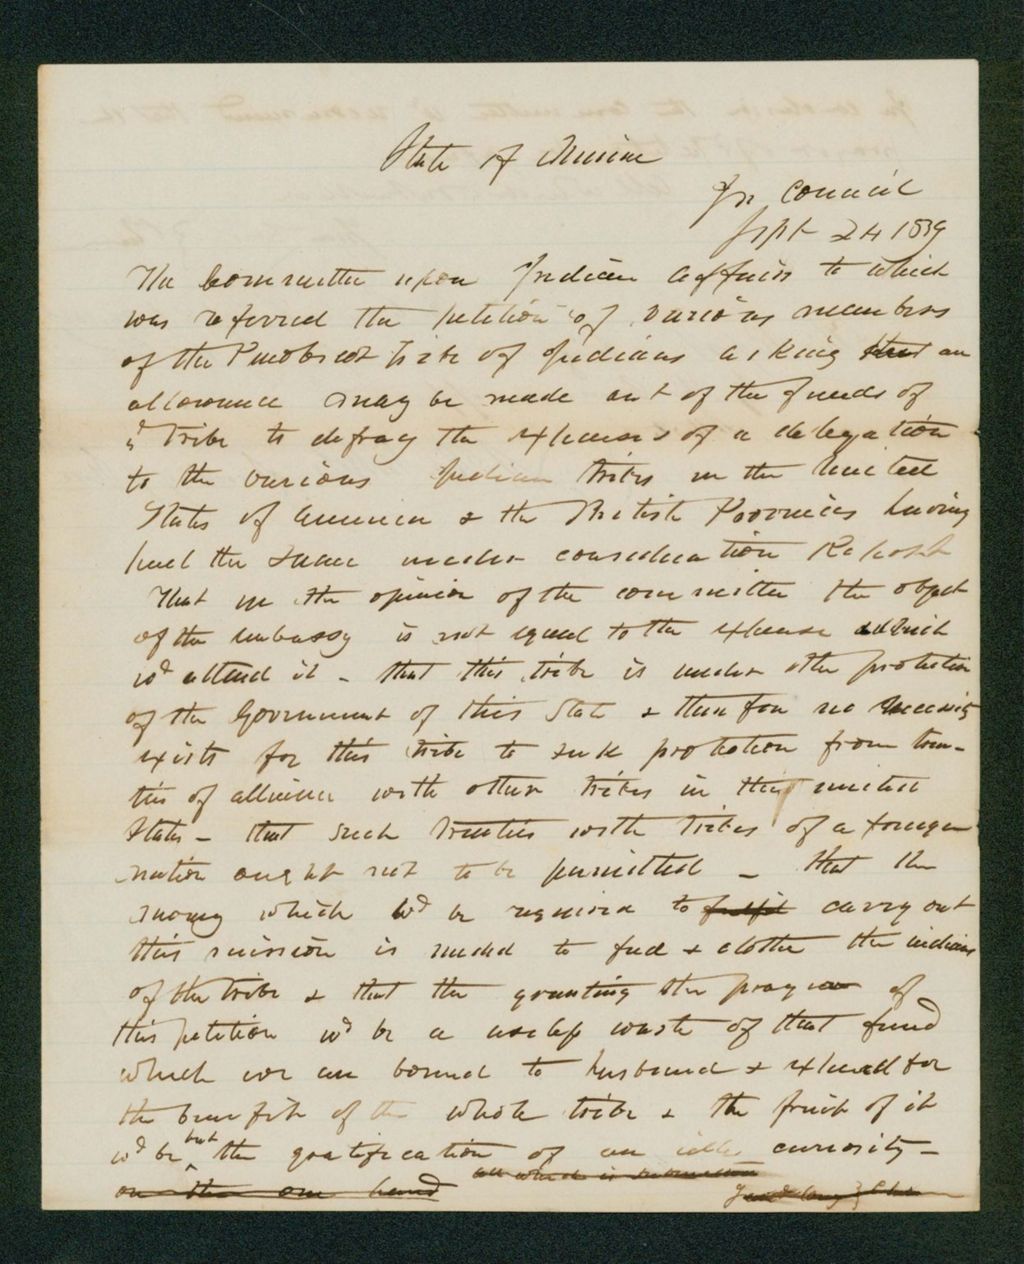 State of Maine
In Council
Sept 24 1839
The Committee upon Indian affairs to which
was referred the petition of various members
of the Penobscot tribe of Indians asking that an
allowance may be made out of the funds of
sd tribe to defray the expenses of a delegation
to the various Indian tribes in the United
States of America & the British Provinces having
had the same under consideration Report
That in the opinion of the committee the object
of the embassy is not equal to the expense which
wd attend it - that this tribe is under the protection
of the Government of this State & therefore no necessity
exists for this tribe to seek protection from trea-
ties of alliance with other tribes in the united
States - that such treaties with tribes of a foreign
nation ought not to be permitted - that the
money which wd be required to fulfil carry out
this mission is needed to feed & clothe the indians
of the tribe & that the granting the prayer of
this petition wd be a useless waste of that fund
which we are bound to husband & expend for
the benefit of the whole tribe & the fruit of it
wd be but the gratification of an idle curiosity -
on the one hand all which is submitted